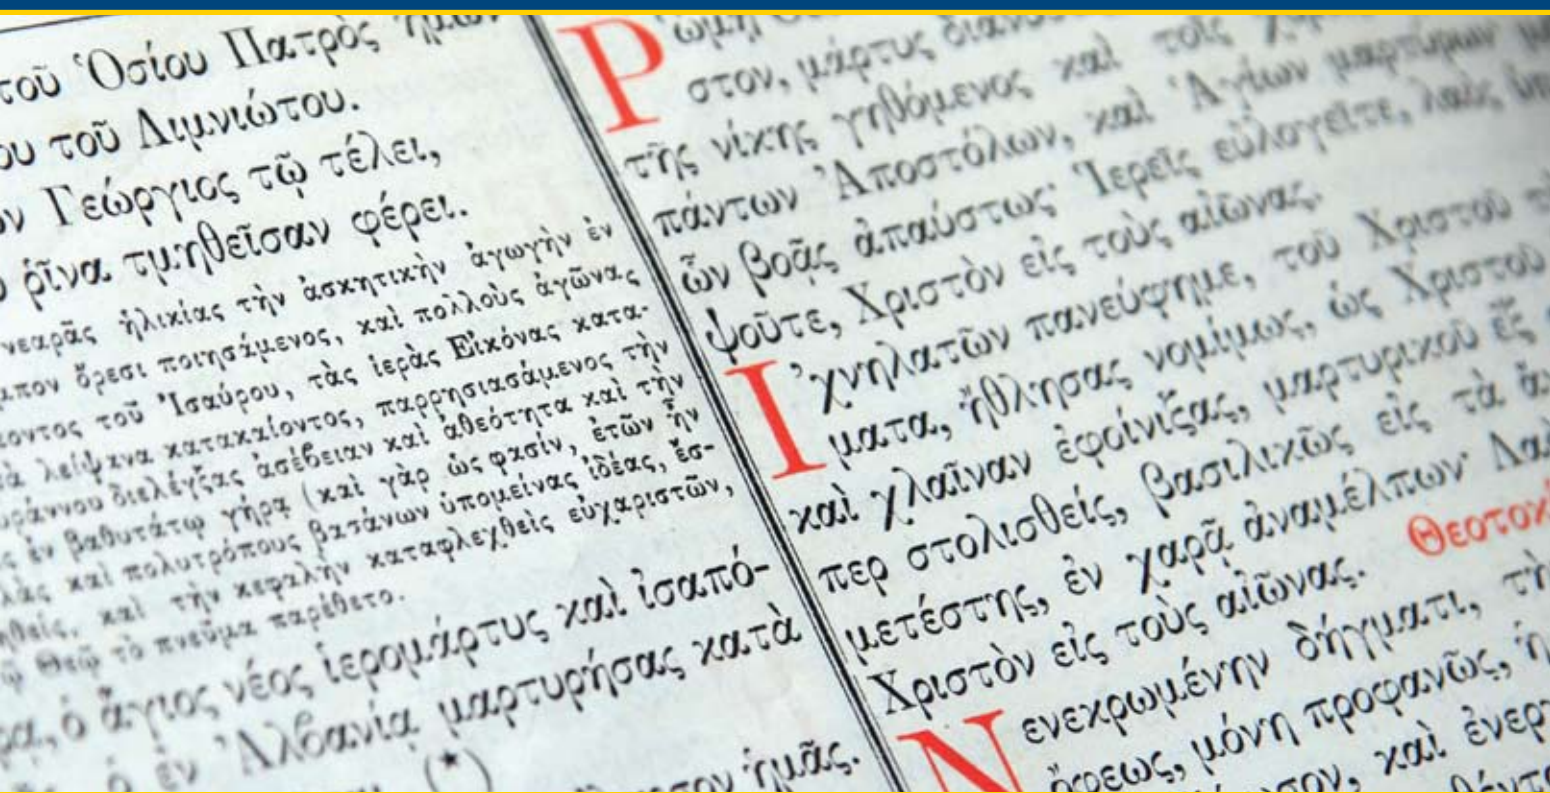 τοῦ Ὁσίου Πατρὸς ἡμῶν
ου τοῦ Λιμνιώτου.
ν Γεώργιος τῷ τέλει,
ῥῖνα τμηθεῖσαν φέρει.
νεαρᾶς ἡλικίας τὴν ἀσκητικὴν ἀγωγὴν ἐν
ὄρεσι ποιησάμενος, καὶ πολλοὺς ἀγῶνας
τοῦ Ἰσαύρου, τὰς ἱερὰς Εἰκόνας κατα-
λείψανα κατακαίοντος, παρρησιασάμενος τὴν
διελέγξας ἀσέβειαν καὶ ἀθεότητα καὶ τὴν
ἐν βαθυτάτῳ γήρᾳ (καὶ γὰρ ὡς φασίν, ἐτῶν ἦν
καὶ πολυτρόπους βασάνων ὑπομείνας ἰδέας, ἐσ-
καὶ τὴν κεφαλὴν καταφλεχθεὶς εὐχαριστῶν,
Θεῷ τὸ πνεῦμα παρέθετο.
ρα, ὁ ἅγιος νέος ἱερομάρτυς καὶ ἰσαπό-
ὁ ἐν Ἀλβανίᾳ μαρτυρήσας κατὰ
(*)
ἡμᾶς.
Ρ
στον, μάρτυς
τῆς νίκης γηθόμενος καὶ τοῖς
πάντων Ἀποστόλων, καὶ Ἁγίων μαρτύρων
ὧν βοᾷς ἀπαύστως· Ἱερεῖς εὐλογεῖτε, λαὸς
ψοῦτε, Χριστὸν εἰς τοὺς αἰῶνας.
Ἰχνηλατῶν πανεύφημε, τοῦ Χριστοῦ
ματα, ἤθλησας νομίμως, ὡς Χριστοῦ
καὶ χλαῖναν ἐφοίνιξας, μαρτυρικοῦ ἐξ
περ στολισθείς, βασιλικῶς εἰς τὰ
μετέστης, ἐν χαρᾷ ἀναμέλπων· Λα
Χριστὸν εἰς τοὺς αἰῶνας. Θεοτοκ
Νενεκρωμένην δήγματι, τὴ
ὄφεως, μόνη προφανῶς, ἡ
καὶ ἐνερ